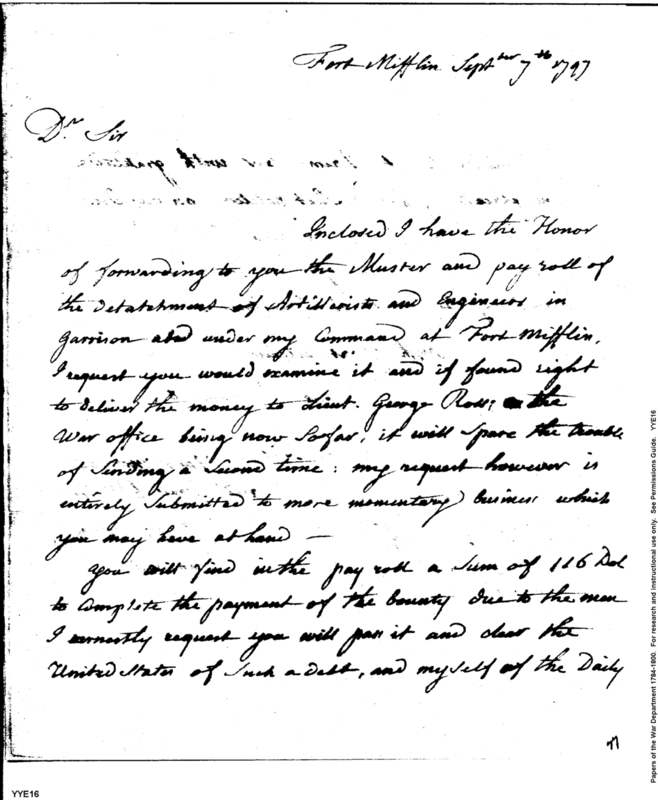 Fort Mifflin Septber 7th 1797
Dr Sir
with gratitude
Inclosed I have the Honor
of forwarding to you the Muster and pay roll of
the detatchment of Artillerists and Engineers in
Garrison and under my Command at Fort Mifflin,
I request you would examine it and if found right
to deliver the money to Lieut. George Ross; the
War office being now Sofar, it will Spare the trouble
of Sending a Second time: my request however is
entirely Submitted to more momentary business which
you may have at hand —
You will find in the pay roll a Sum of 116 Dol
to Complete the payment of the bounty due to the men
I earnestly request you will pass it and clear the
United States of Such a debt, and myself of the Daily
YYE16
Papers of the War Department 1784-1800. For research and instructional use only. See Permissions Guide. YYE16